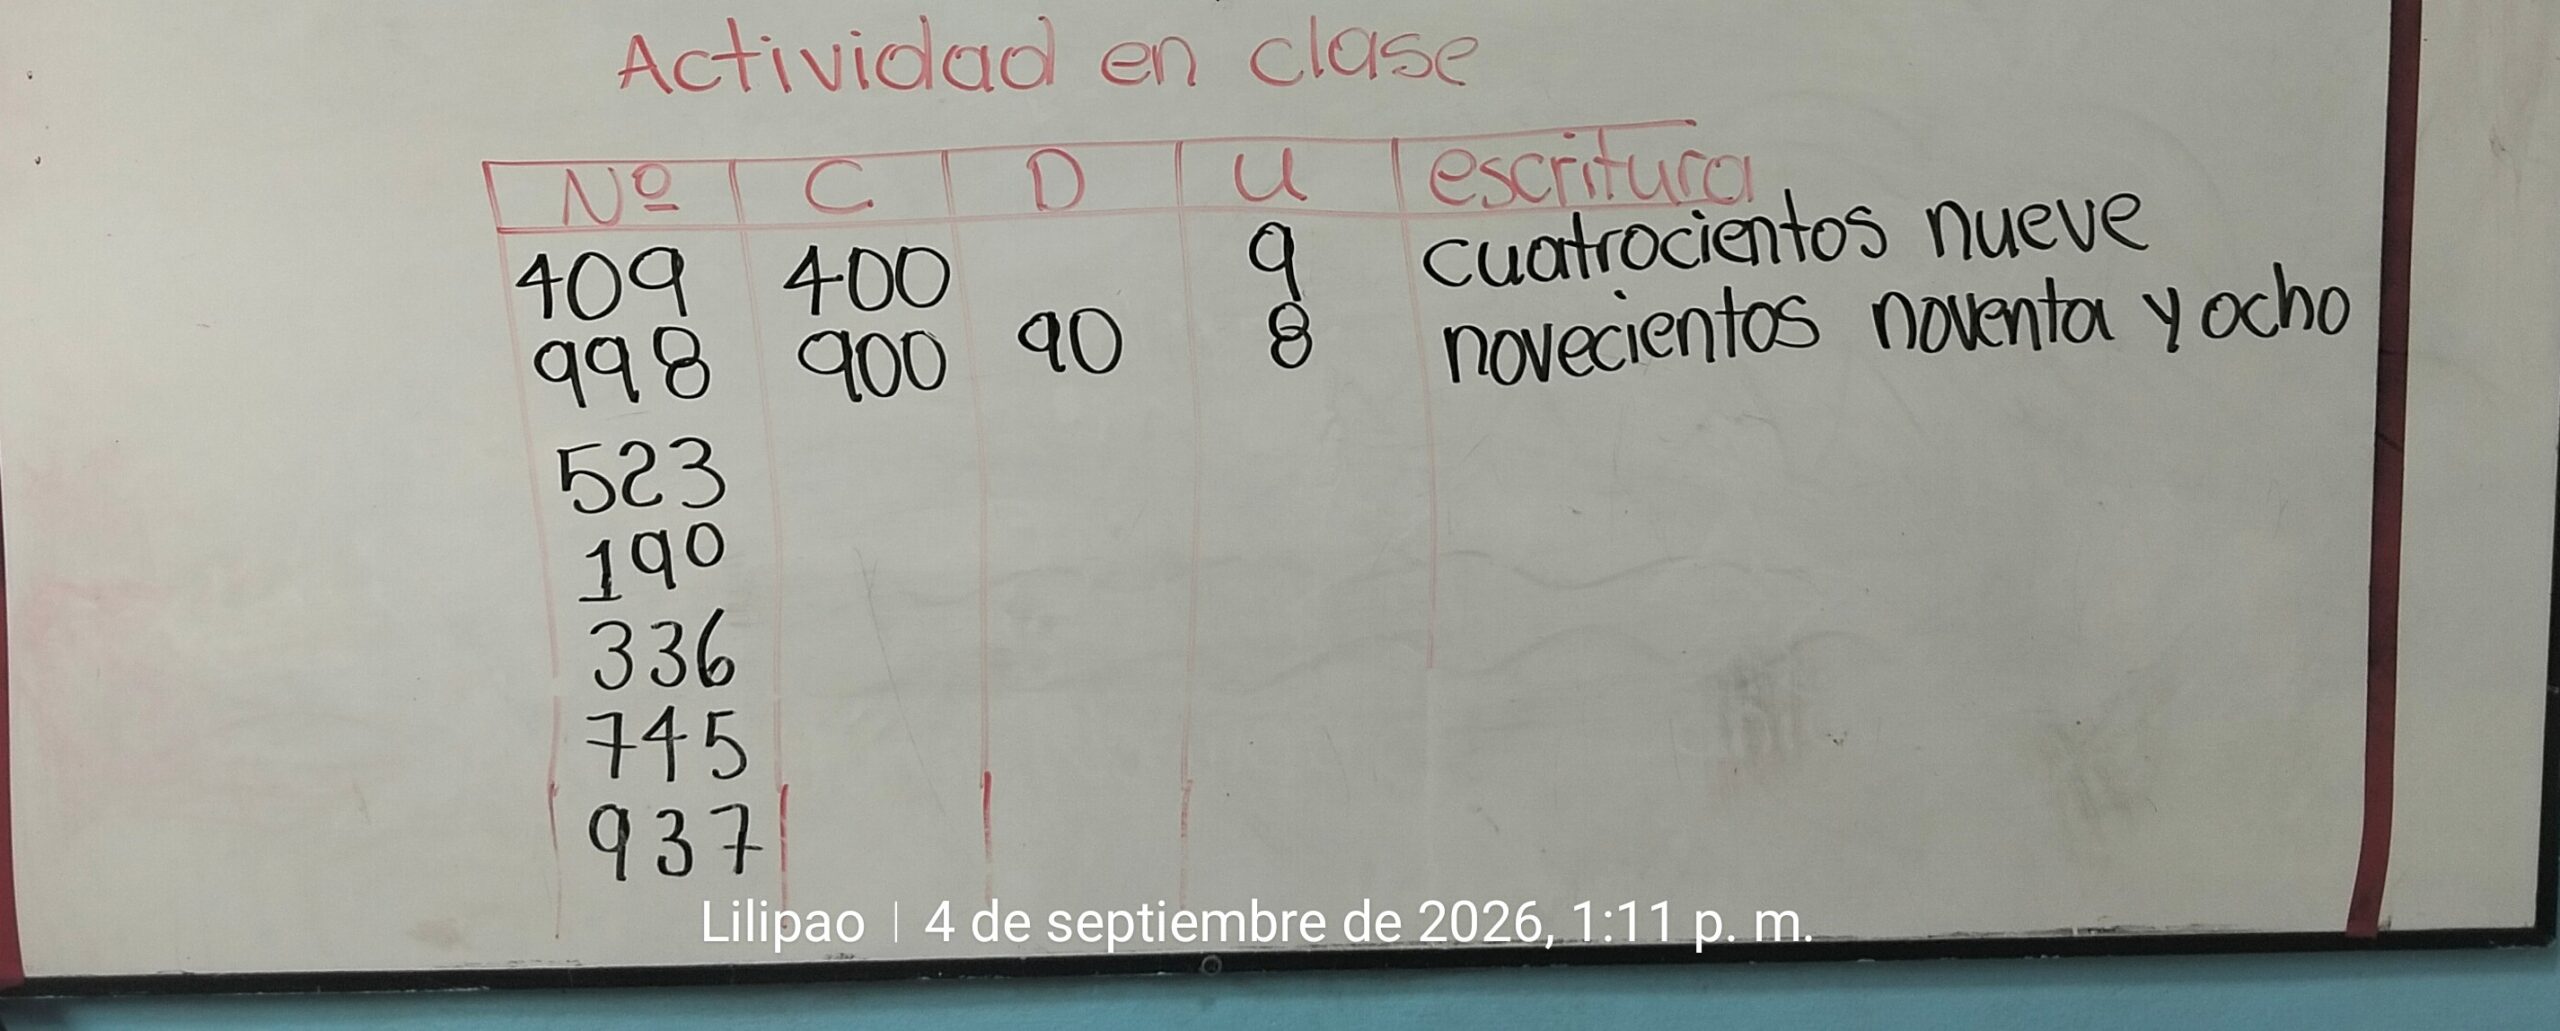 Actividad en clase
Nº C D U escritura
409 400 9 cuatrocientos nueve
998 900 90 8 novecientos noventa y ocho
523
190
336
745
937
Lilipao | 4 de septiembre de 2026, 1:11 p. m.